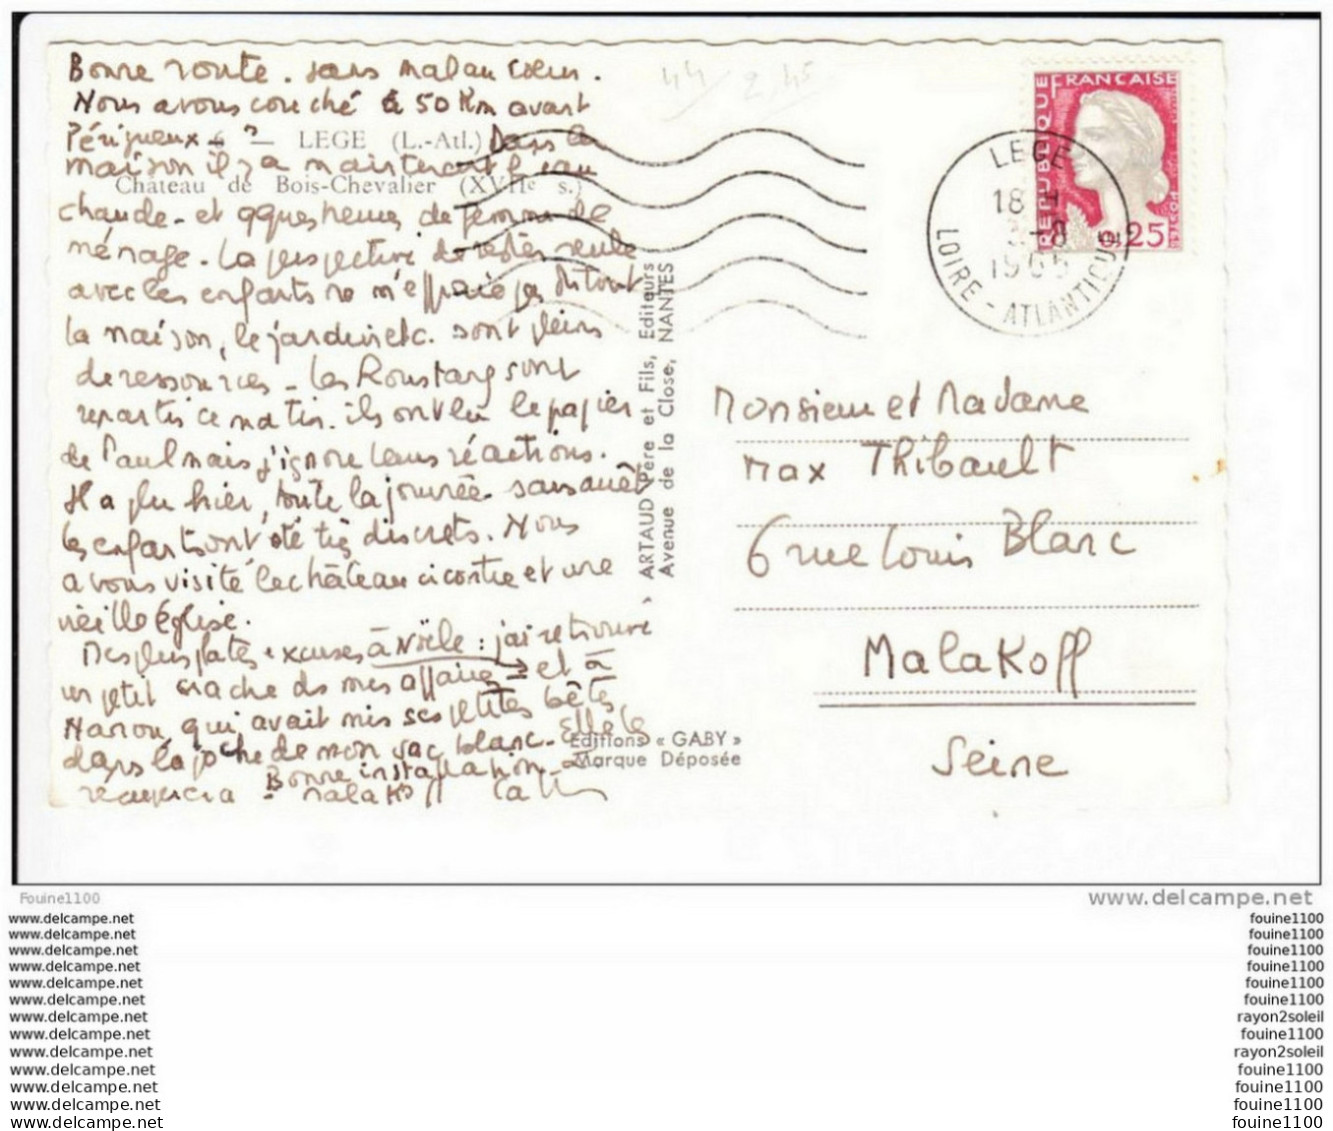 Bonne route. sans mal au cœur.
Nous avons couché à 50 Km avant
Périgueux - Dans la
6 - LEGE (L.-Atl.)
maison il y a maintenant l'eau
Château de Bois-Chevalier (XVIIe s.)
chaude - et qques heures de femme de
ménage. La perspective de rester seule
avec les enfants ne m'effraie pas du tout
la maison, le jardin etc. sont pleins
de ressources - Les Roustang sont
repartis ce matin. ils ont lu le papier
de Paul mais j'ignore leurs réactions.
Il a plu hier, toute la journée sans arrêt
les enfants ont été très discrets. Nous
avons visité le château ci contre et une
vieille église.
Des plus plates excuses à Noële : j'ai retrouvé
un petit cache ds mes affaires - et à
Nanou, qui avait mis ses petites bêtes
dans la poche de mon sac blanc. Elle les
Bonne installation à
Malakoff
ARTAUD Père et Fils, Editeurs
Avenue de la Close, NANTES
Editions « GABY »
Marque Déposée
44 2,45
REPUBLIQUE FRANCAISE
POSTES
0,25
LEGE
18 H
-8
1965
LOIRE - ATLANTIQUE
Monsieur et Madame
Max Thibault
6 rue Louis Blanc
Malakoff
Seine
Fouine1100
delcampe.net
www.delcampe.net
www.delcampe.net
www.delcampe.net
www.delcampe.net
www.delcampe.net
www.delcampe.net
www.delcampe.net
www.delcampe.net
www.delcampe.net
www.delcampe.net
www.delcampe.net
www.delcampe.net
www.delcampe.net
fouine1100
fouine1100
fouine1100
fouine1100
fouine1100
fouine1100
rayon2soleil
fouine1100
rayon2soleil
fouine1100
fouine1100
fouine1100
fouine1100